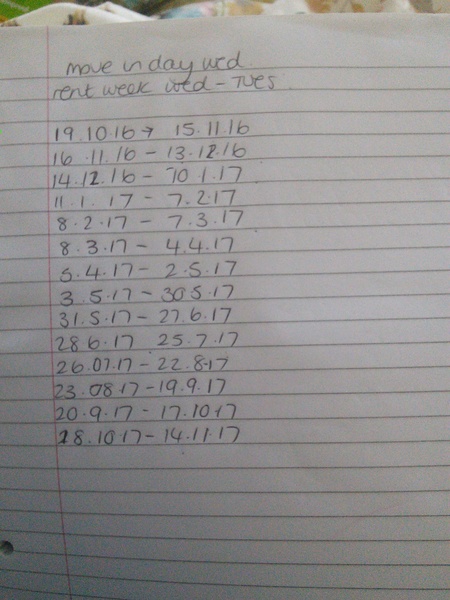 move in day wed
rent week wed - Tues
19.10.16 → 15.11.16
16.11.16 - 13.12.16
14.12.16 - 10.1.17
11.1.17 - 7.2.17
8.2.17 - 7.3.17
8.3.17 - 4.4.17
5.4.17 - 2.5.17
3.5.17 - 30.5.17
31.5.17 - 27.6.17
28.6.17 25.7.17
26.07.17 - 22.8.17
23.08.17 - 19.9.17
20.9.17 - 17.10.17
18.10.17 - 14.11.17